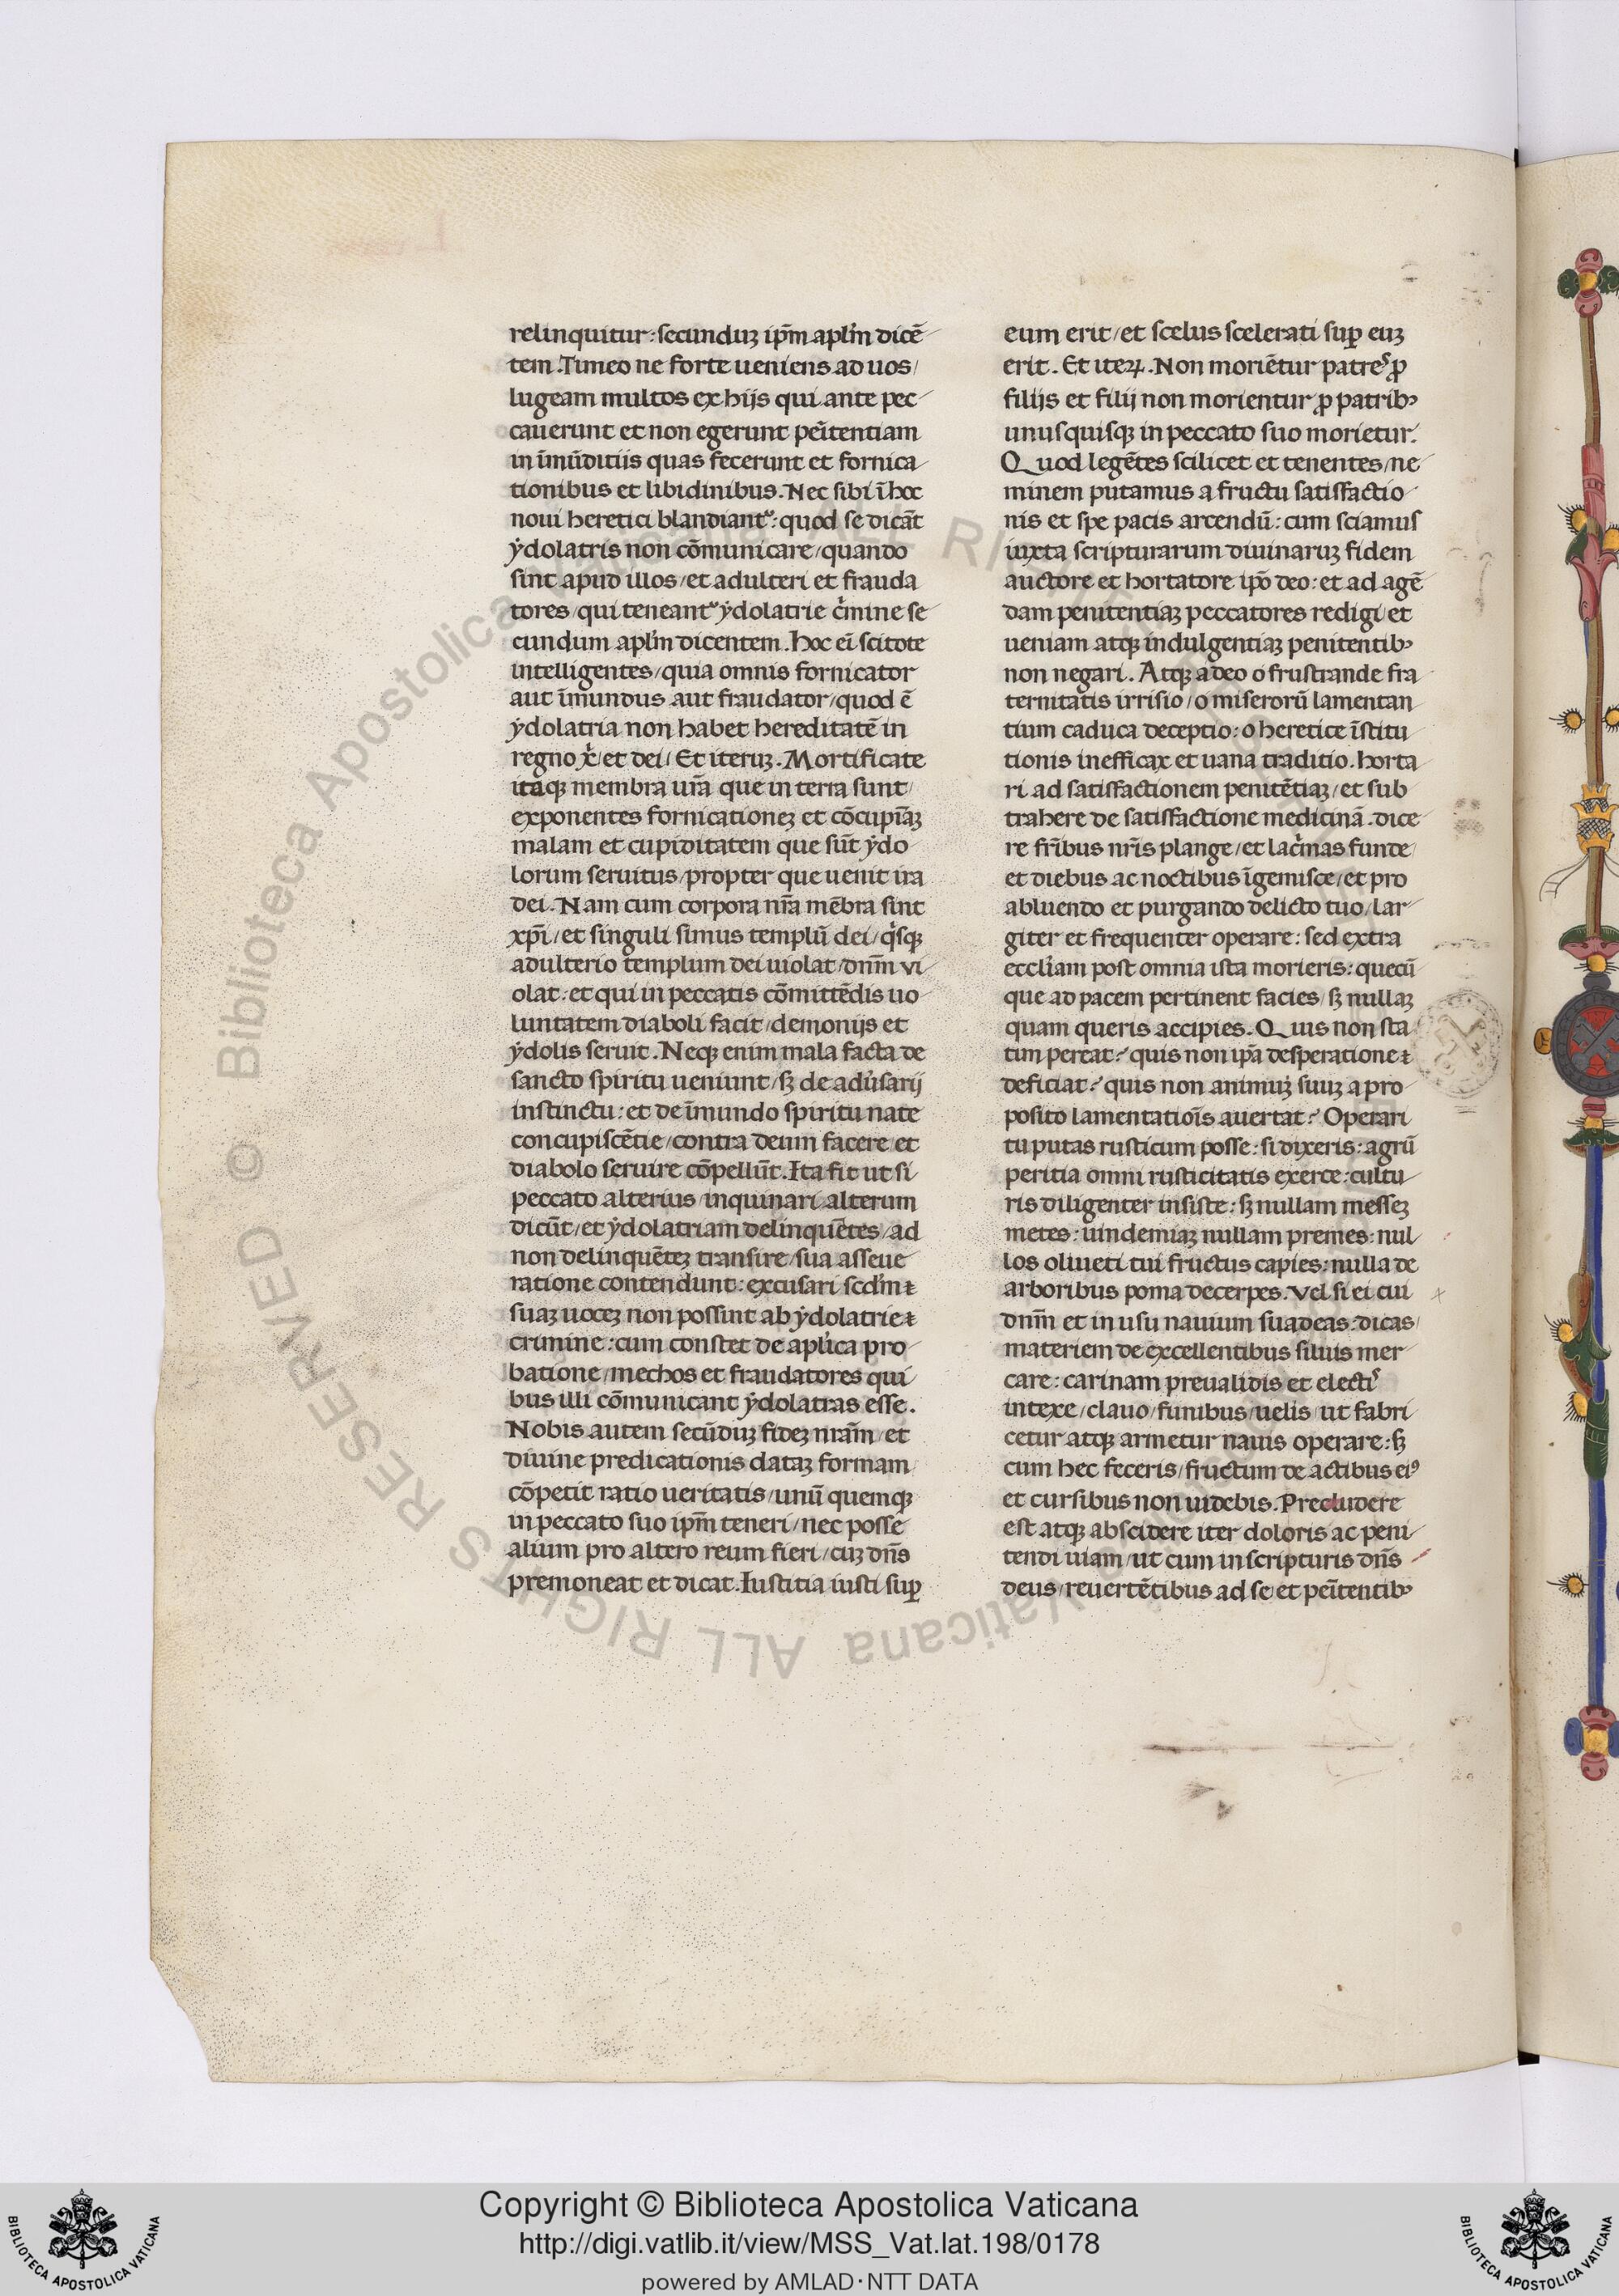 relinquitur: secunduꝫ ip̄m apl'm dicē
tem. Timeo ne forte ueniens ad uos/
lugeam multos ex hijs qui ante pec
cauerunt et non egerunt penĩtentiam
in ĩmũditiis quas fecerunt et fornica
tionibus et libidinibus. Nec sibi ĩ hoc
noui heretici blandiantᷣ: quod se dicãt
ẏdolatris non cõmunicare/quando
sint apud illos/et adulteri et frauda
tores/qui teneantᷣ ẏdolatrie cͥmine se
cundum apl'm dicentem. hoc eĩ scitote
intelligentes/quia omnis fornicator
aut ĩmundus aut fraudator/quod ē
ẏdolatria non habet hereditatē in
regno xͥ/et dei/Et iteruꝫ. Mortificate
itaqꝫ membra ur̄a que in terra sunt/
exponentes fornicationeꝫ et cõcupi̅aꝫ
malam et cupiditatem que sũt ẏdo
lorum seruitus/propter que uenit ira
dei. Nam cum corpora nr̄a mēbra sint
xp̄i/et singuli simus templũ dei/qͥsqꝫ
adulterio templum dei uiolat/dn̄m vi
olat: et qui in peccatis cõmittēdis uo
luntatem diaboli facit/demonijs et
ẏdolis seruit. Neqꝫ enim mala facta de
sancto spiritu ueniunt/sꝫ de aduͥsarij
instinctu: et de ĩmundo spiritu nate
concupiscētie/contra deum facere/et
diabolo seruire cõpellũt. Ita fit ut si
peccato alterius/inquinari alterum
dicũt/et ẏdolatriam delinquētes/ad
non delinquēteꝫ transire/sua asseue
ratione contendunt: excusari scd'm ꝛ
suaꝫ uoceꝫ non possint ab ẏdolatrie ꝛ
crimine: cum constet de apl'ica pro
batione/mechos et fraudatores qui
bus illi cõmunicant ẏdolatras esse.
Nobis autem secũduꝫ fideꝫ nr̄am/et
diuine predicationis dataꝫ formam
cõpetit ratio ueritatis/unũ quemqꝫ
in peccato suo ip̄m teneri/nec posse
alium pro altero reum fieri/cuꝫ dn̄s
premoneat et dicat. Iustitia iusti suꝑ
eum erit/et scelus scelerati suꝑ euꝫ
erit. Et iteꝝ. Non moriētur patreˢ ꝓ
filijs et filij non morientur ꝓ patribꝰ
unusquisqꝫ in peccato suo morietur.
Quod legētes scilicet et tenentes/ne
minem putamus a fructu satisfactio
nis et spe pacis arcendũ: cum sciamus
iuxta scripturarum diuinaruꝫ fidem
auctore et hortatore ip̄o deo: et ad agē
dam penitentiaꝫ peccatores redigi/et
ueniam atqꝫ indulgentiaꝫ penitentibꝰ
non negari. Atqꝫ adeo o frustrande fra
ternitatis irrisio/o miserorũ lamentan
tium caduca deceptio: o heretice ĩstitu
tionis inefficax et uana traditio. horta
ri ad satisfactionem penitētiaꝫ/et sub
trahere de satisfactione medicinã. dice
re fr̄ibus nr̄is plange/et lacͥmas funde
et diebus ac noctibus ĩgemisce/et pro
abluendo et purgando delicto tuo/lar
giter et frequenter operare: sed extra
eccl'iam post omnia ista morieris: quecũ
que ad pacem pertinent facies/sꝫ nullaꝫ
quam queris accipies. Quis non sta
tim pereat? quis non ip̄a desperatione ꝛ
deficiat? quis non animuꝫ suuꝫ a pro
posito lamentatiõis auertat? Operari
tu putas rusticum posse: si dixeris: agrũ
peritia omni rusticitatis exerce: cultu
ris diligenter insiste: sꝫ nullam messeꝫ
metes: uindemiaꝫ nullam premes: nul
los oliueti tui fructus capies: nulla de
arboribus poma decerpes. Vel si ei cui
dn̄m et in usu nauium suadeas: dicas/
materiem de excellentibus siluis mer
care: carinam preualidis et electiˢ
intexe/clauo/funibus/uelis/ut fabri
cetur atqꝫ armetur nauis operare: sꝫ
cum hec feceris/fructum de actibus eiꝰ
et cursibus non uidebis. Precludere
est atqꝫ abscidere iter doloris ac peni
tendi uiam/ut cum in scripturis dn̄s
deus/reuertētibus ad se/et penĩtentibꝰ
Copyright © Biblioteca Apostolica Vaticana
http://digi.vatlib.it/view/MSS_Vat.lat.198/0178
powered by AMLAD·NTT DATA